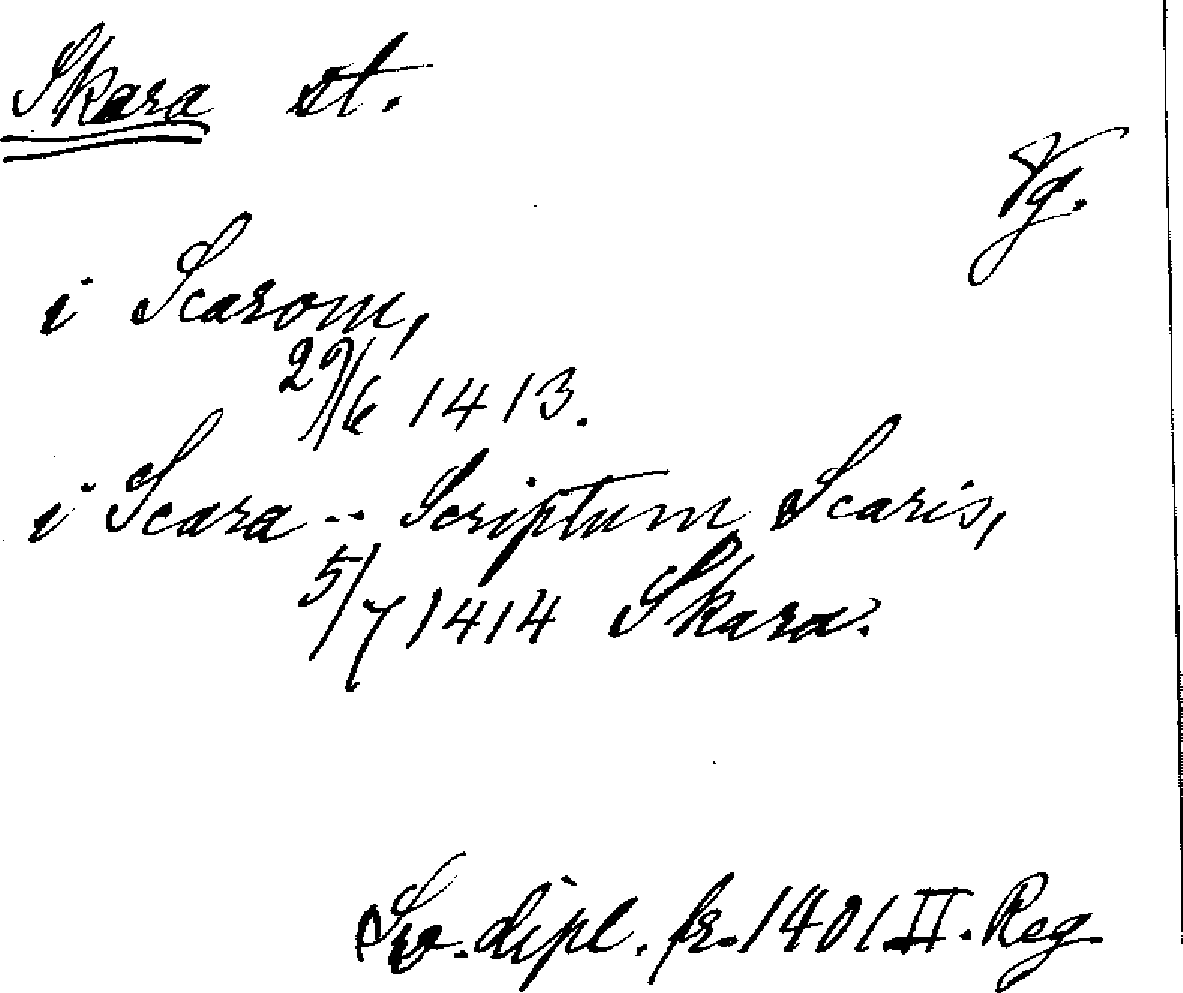 Skara st.
Vg.
i Scarom,
29/6 1413.
i Scara -- Scriptum Scaris,
5/7 1414 Skara.
Sv. dipl. fr. 1401 II. Reg.